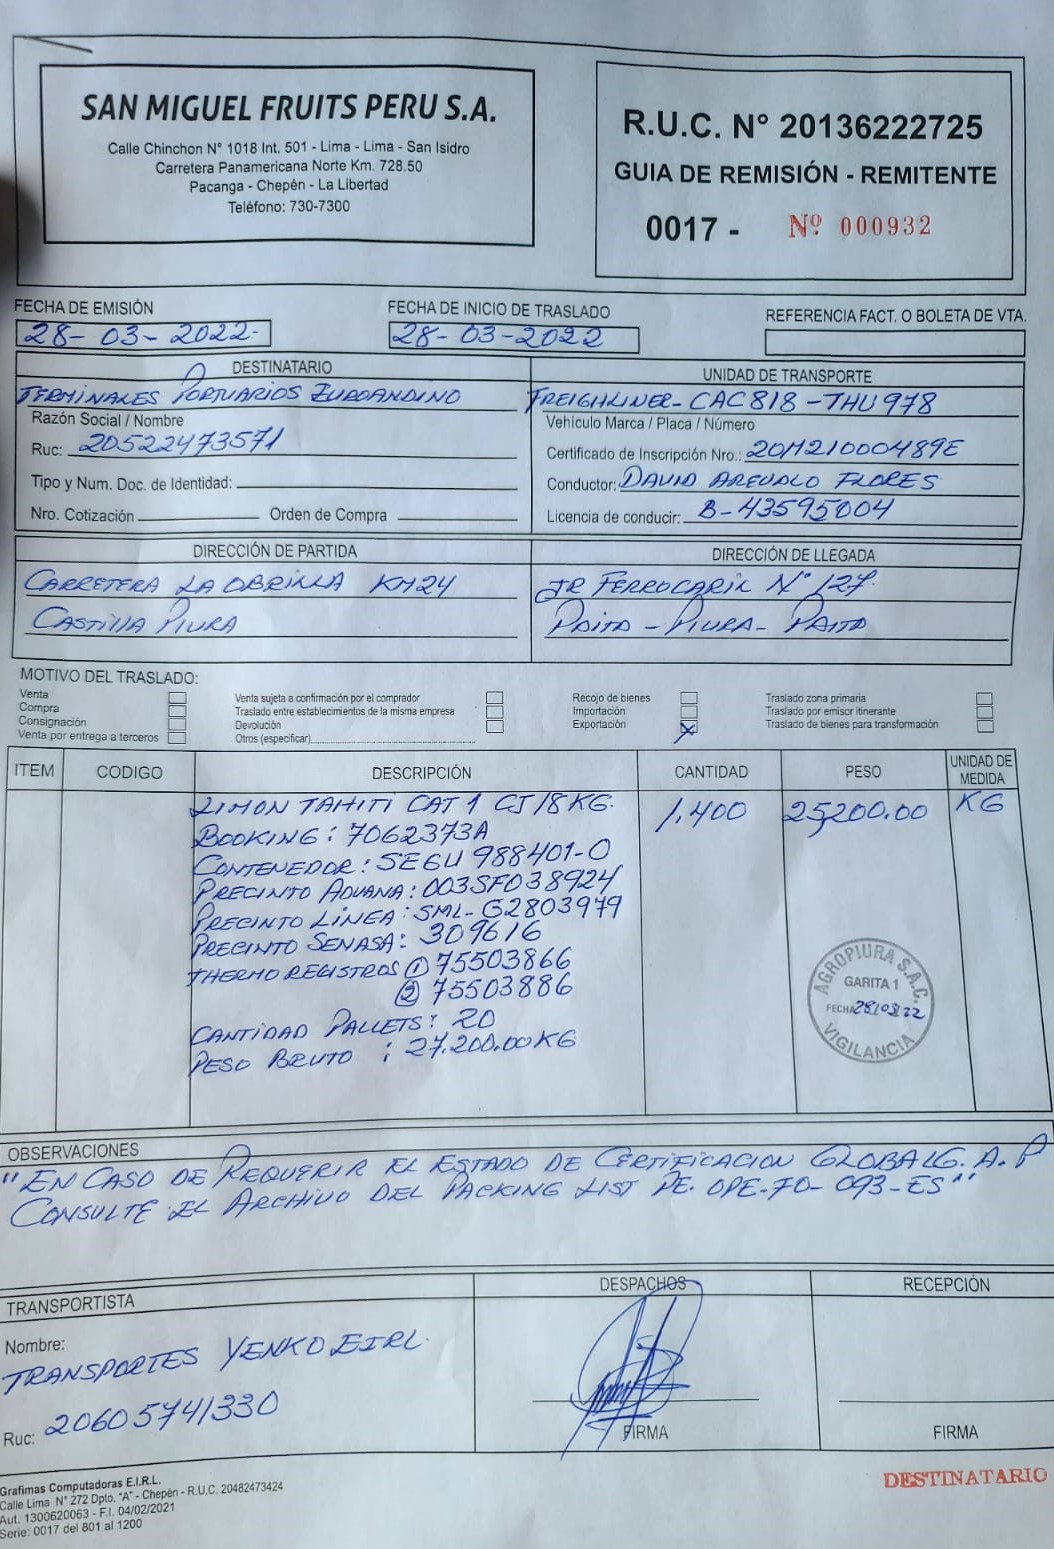 SAN MIGUEL FRUITS PERU S.A.
Calle Chinchon N° 1018 Int. 501 - Lima - Lima - San Isidro
Carretera Panamericana Norte Km. 728.50
Pacanga - Chepén - La Libertad
Teléfono: 730-7300
R.U.C. N° 20136222725
GUIA DE REMISIÓN - REMITENTE
0017 - Nº 000932
FECHA DE EMISIÓN
28-03-2022-
FECHA DE INICIO DE TRASLADO
28-03-2022
REFERENCIA FACT. O BOLETA DE VTA.
DESTINATARIO
TERMINALES PORTUARIOS EUROANDINO
Razón Social / Nombre
Ruc: 20522473571
Tipo y Num. Doc. de Identidad:
Nro. Cotización Orden de Compra
UNIDAD DE TRANSPORTE
FREIGHLINER-CAC818-THU978
Vehículo Marca / Placa / Número
Certificado de Inscripción Nro.: 20M21000489E
Conductor: DAVID AREVALO FLORES
Licencia de conducir: B-43595004
DIRECCIÓN DE PARTIDA
CARRETERA LA OBRILLA KM24
CASTILLA PIURA
DIRECCIÓN DE LLEGADA
JR FERROCARIL N° 127.
PAITA - PIURA - PAITA
MOTIVO DEL TRASLADO:
Venta
Compra
Consignación
Venta por entrega a terceros
Venta sujeta a confirmación por el comprador
Traslado entre establecimientos de la misma empresa
Devolución
Otros (especificar)
Recojo de bienes
Importación
Exportación X
Traslado zona primaria
Traslado por emisor itinerante
Traslado de bienes para transformación
ITEM CODIGO DESCRIPCIÓN CANTIDAD PESO UNIDAD DE MEDIDA
LIMON TAHITI CAT 1 CJ/8KG. 1,400 25,200.00 KG
BOOKING: 7062373A
CONTENEDOR: SEGU 988401-0
PRECINTO ADUANA: 003SF038924
PRECINTO LÍNEA: SML-G2803979
PRECINTO SENASA: 309616
THERMO REGISTROS ① 75503866
② 75503886
CANTIDAD PALLETS: 20
PESO BRUTO : 27,200.00KG
AGROPIURA S.A.C.
GARITA 1
FECHA 28/03/22
VIGILANCIA
OBSERVACIONES
"EN CASO DE REQUERIR EL ESTADO DE CERTIFICACION GLOBALG.A.P
CONSULTE EL ARCHIVO DEL PACKING LIST PE.OPE-FO-093-ES"
TRANSPORTISTA
Nombre:
TRANSPORTES YENKO EIRL.
Ruc: 20605741330
DESPACHOS
FIRMA
RECEPCIÓN
FIRMA
Grafimas Computadoras E.I.R.L.
Calle Lima N° 272 Dpto. "A" - Chepén - R.U.C. 20482473424
Aut. 1300620063 - F.I. 04/02/2021
Serie: 0017 del 801 al 1200
DESTINATARIO